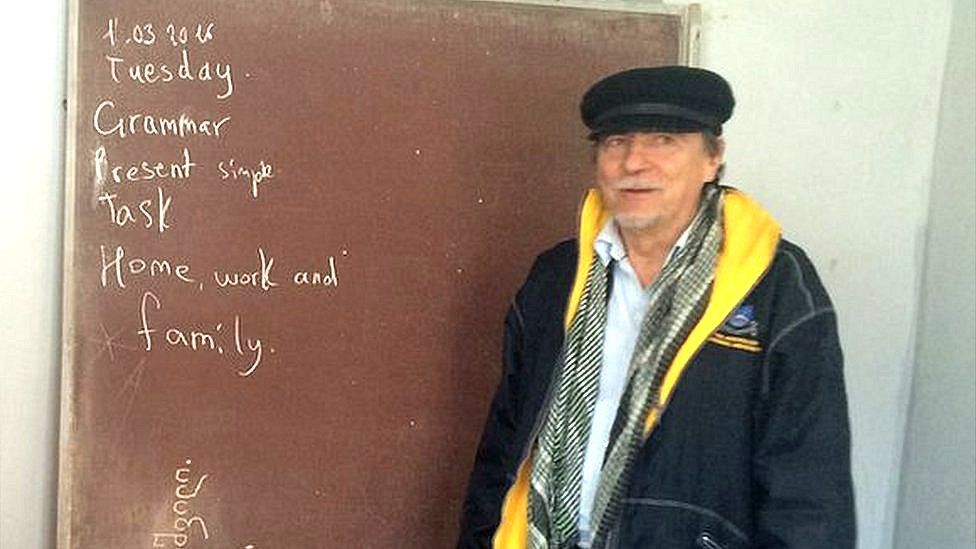 1.03 2016
Tuesday.
Grammar
Present simple
Task
Home, work and
family.